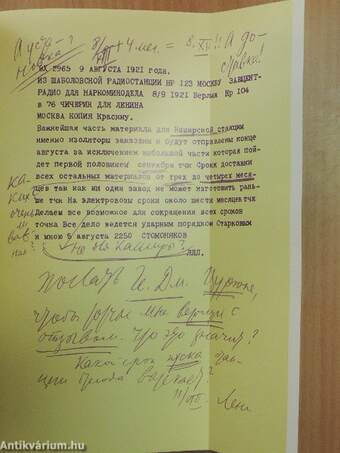 8/VIII + 4 мес. = 8.XII!! А до-
ставка!
вх 2965 9 АВГУСТА 1921 года.
ИЗ ШАБОЛОВСКОЙ РАДИОСТАНЦИИ НР 123 МОСКВУ ЗАВЦЕНТ-
РАДИО ДЛЯ НАРКОМИНОДЕЛА 8/9 1921 Берлин Нр 104
в 76 ЧИЧЕРИН ДЛЯ ЛЕНИНА
МОСКВА КОПИЯ Красину.
Важнейшая часть материала для Каширской станции
именно изоляторы заказаны и будут отправлены конце
августа за исключением небольшой части которая пой-
дет первой половиной сентября тчк Сроки доставки
всех остальных материалов от трех до четырех меся-
цев так как ни один завод не может изготовить рань-
ше тчк На электровозы сроки около шести месяцев тчк
Делаем все возможное для сокращения всех сроков
точка Все дело ведется ударным порядком Старковым
и мною 6 августа 2250 СТОМОНЯКОВ
ка-
ких
очень
ли
важ-
ная?
Но для Каширы?
ЛПЛ.
послать И. Дм. Цурюпе,
чтобы тотчас мне вернул с
отзывом. Что это значит?
Какой срок пуска Каширы
тогда выходит?
11/VIII. Лен